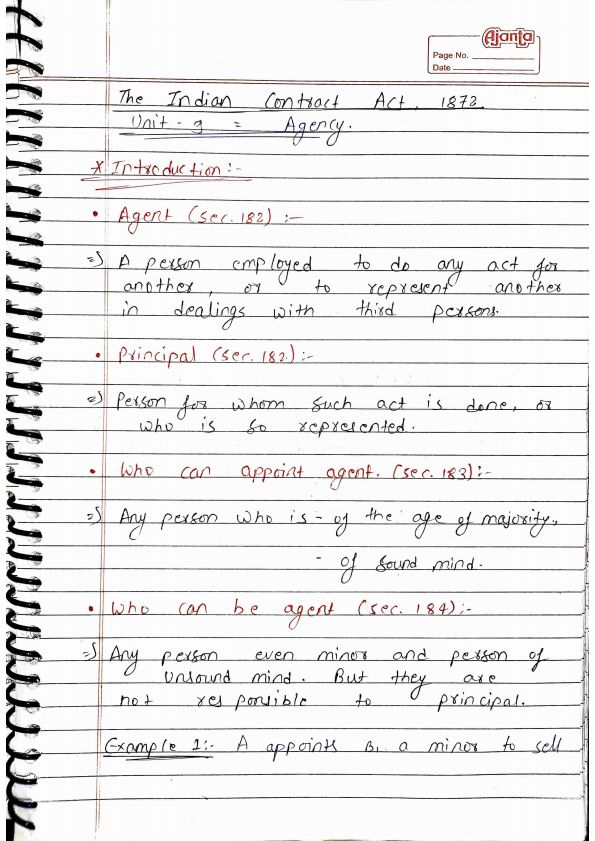 Ajanta
Page No.
Date
The Indian Contract Act, 1872.
Unit - 9 = Agency.
* Introduction :-
• Agent (Sec. 182) :-
=> A person employed to do any act for
another, or to represent another
in dealings with third persons.
• Principal (Sec. 182) :-
=> Person for whom such act is done, or
who is so represented.
• Who can appoint agent. (Sec. 183) :-
=> Any person who is - of the age of majority,
- of sound mind.
• Who can be agent (Sec. 184) :-
=> Any person even minor and person of
unsound mind. But they are
not responsible to principal.
Example 1:- A appoints B, a minor to sell